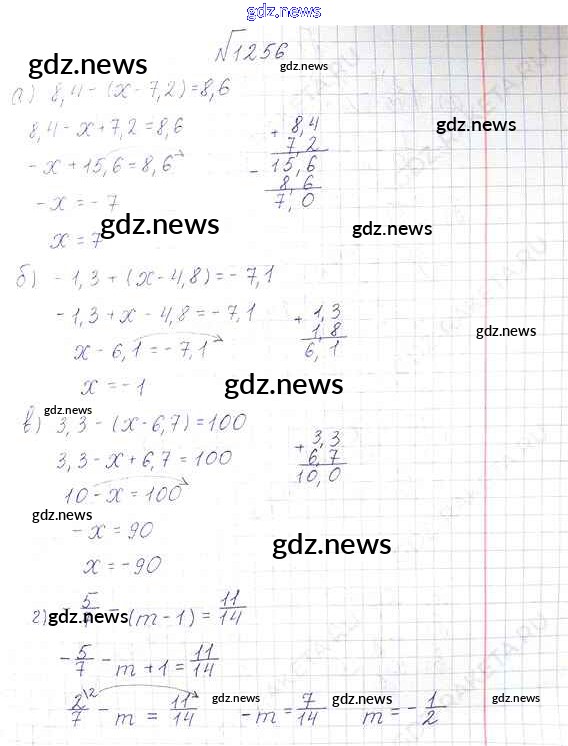 gdz.news
√1256
gdz.news
gdz.news
а) 8,4 - (x - 7,2) = 8,6
8,4 - x + 7,2 = 8,6
+ 8,4
gdz.news
7,2
-x + 15,6 = 8,6
- 15,6
8,6
-x = -7
7,0
gdz.news
gdz.news
x = 7
б) -1,3 + (x - 4,8) = -7,1
-1,3 + x - 4,8 = -7,1
+ 1,3
1,8
gdz.news
x - 6,1 = -7,1
6,1
x = -1
gdz.news
gdz.news
в) 3,3 - (x - 6,7) = 100
3,3 - x + 6,7 = 100
+ 3,3
6,7
10,0
10 - x = 100
gdz.news
-x = 90
gdz.news
x = -90
г) 5 - (m - 1) = 11/14
gdz.news
-5/7 - m + 1 = 11/14
2/7 \2 - m = 11/14 -m = 7/14 m = -1/2
gdz.news gdz.news gdz.news